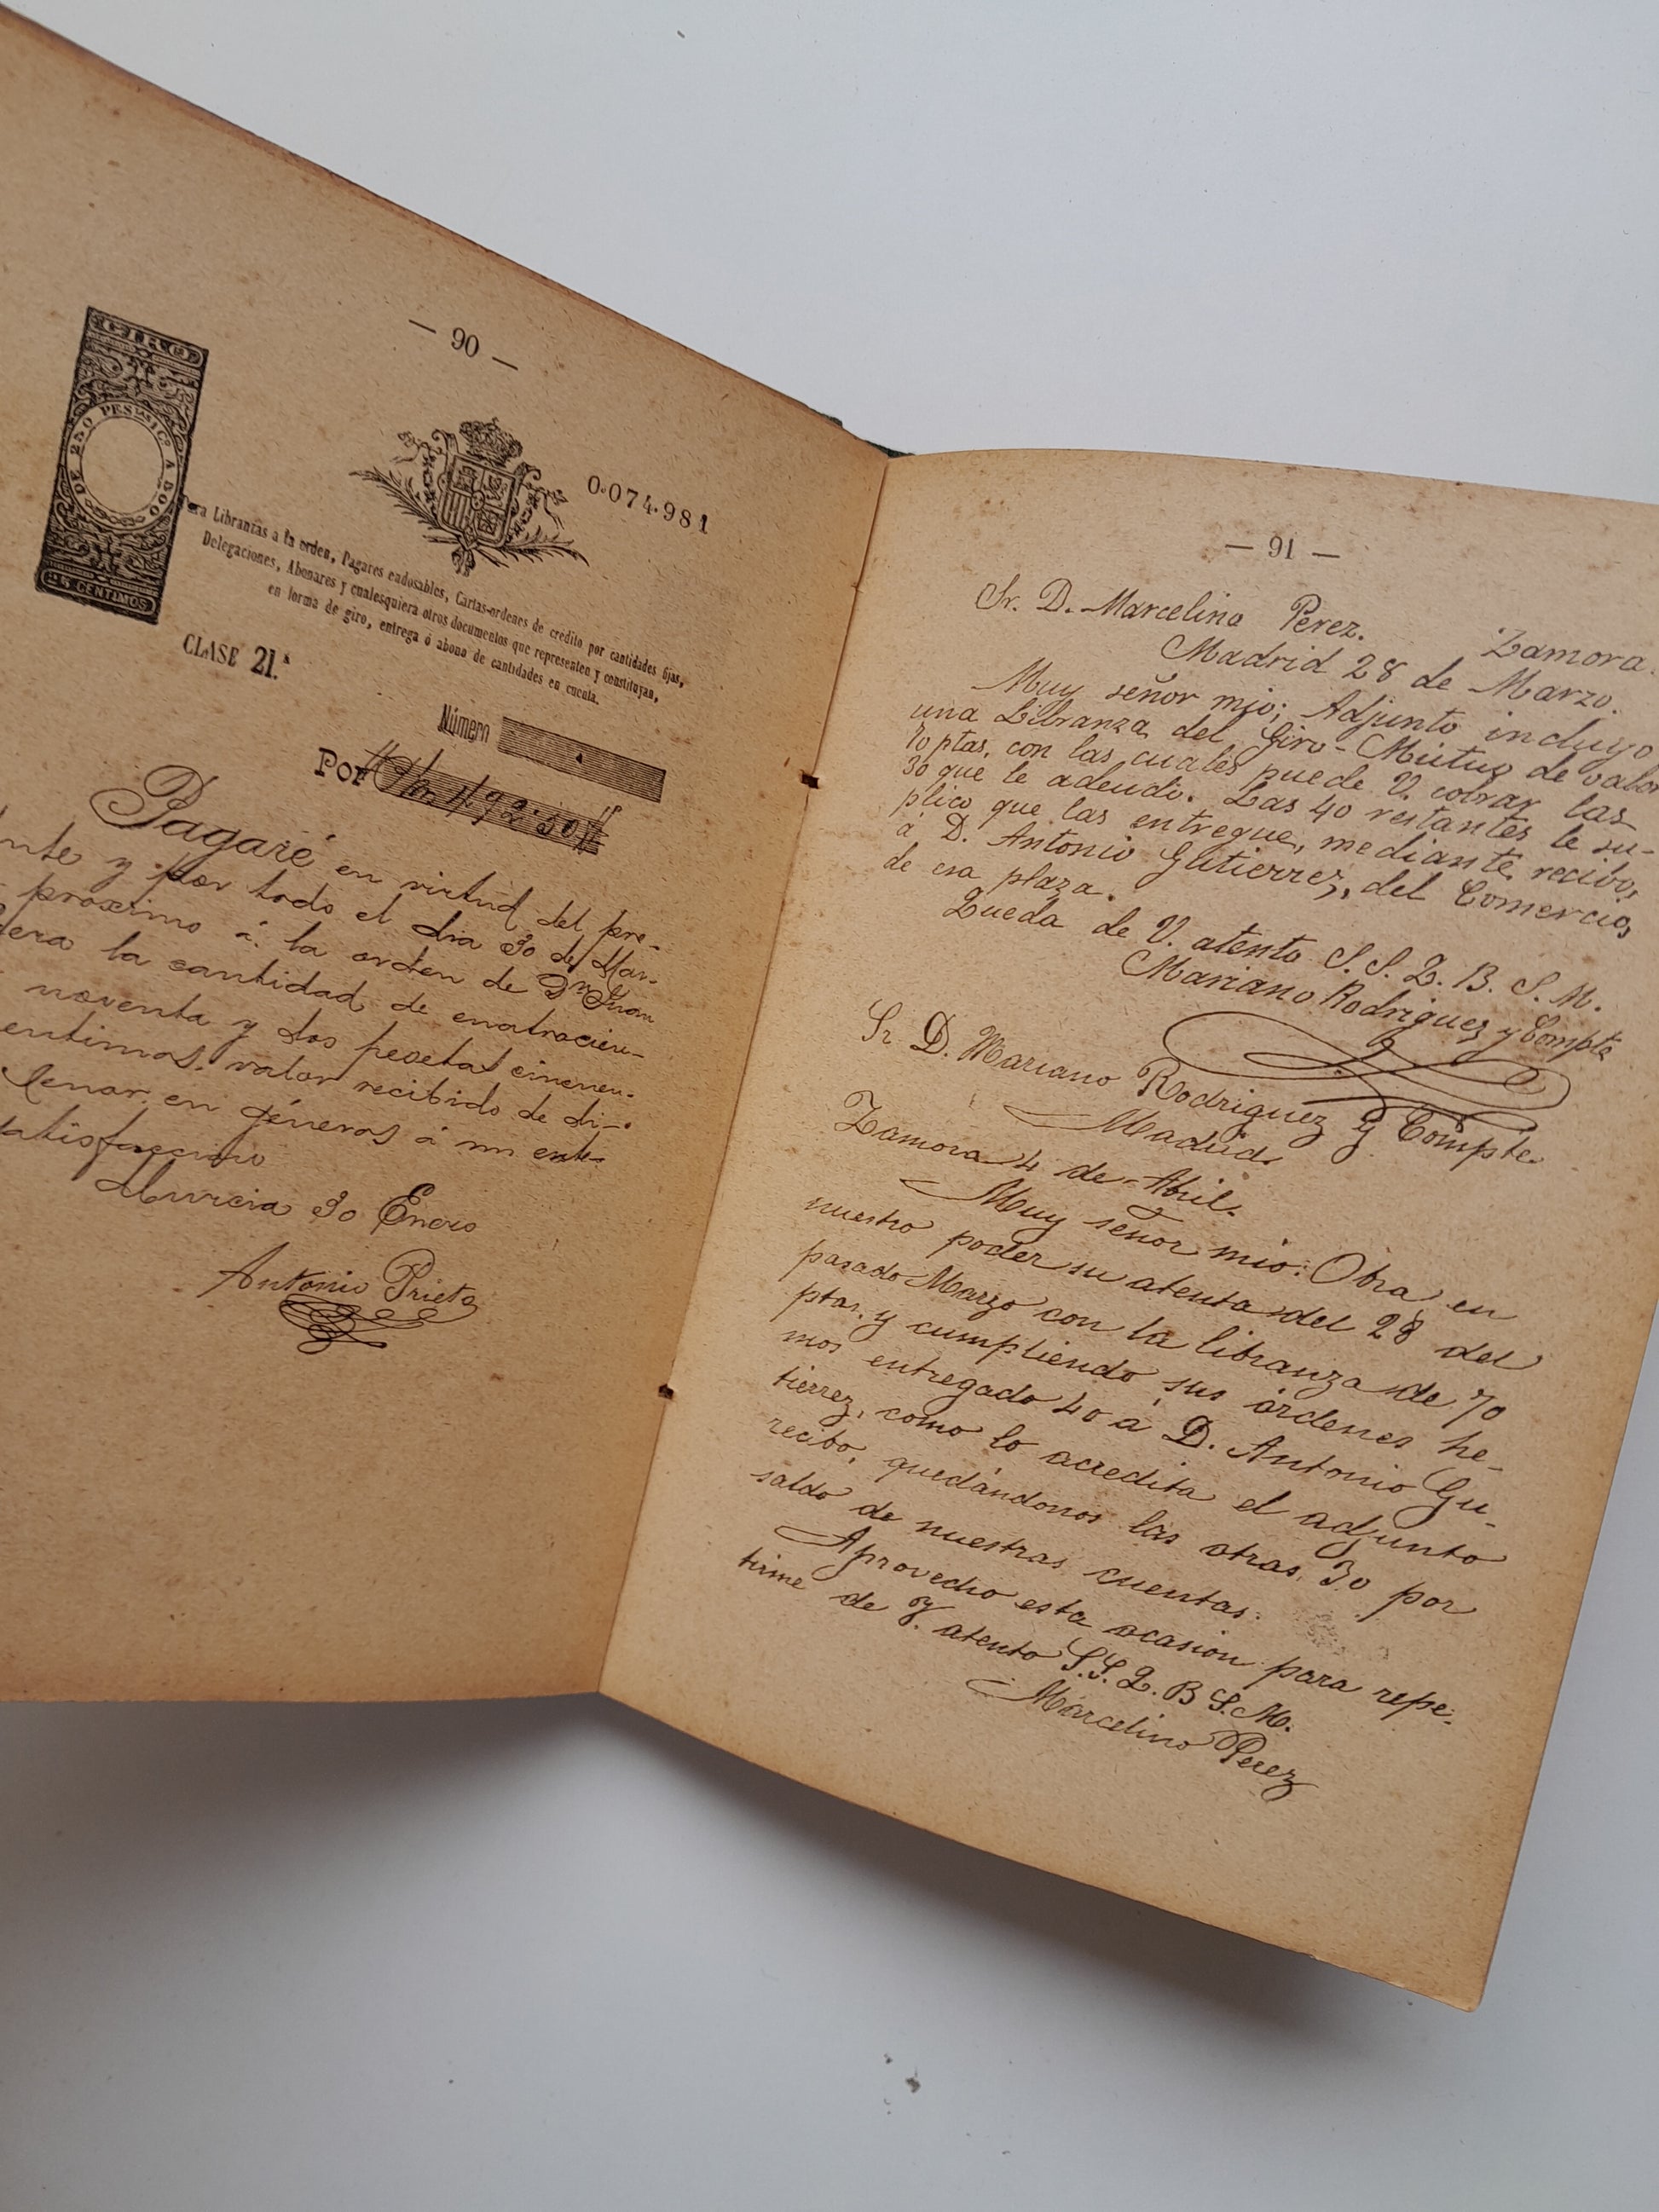 — 90 —
GIRO
DE 250 PESTAS 1 Cº A 500
25 CENTIMOS
0.074.981
Para Libranzas a la orden, Pagares endosables, Cartas-ordenes de credito por cantidades fijas,
Delegaciones, Abonares y cualesquiera otros documentos que representen y constituyan,
en forma de giro, entrega ó abono de cantidades en cuenta.
CLASE 21.ª
Número
Por 492'50
Pagaré en virtud del pre-
nte y por todo el dia 30 de Mar-
próximo á la orden de Dn Juan
era la cantidad de cuatrocien-
noventa y dos pesetas cincuen-
entimos, valor recibido de di-
en géneros á mi ente-
atisfaccion
Murcia 30 Enero
Antonio Prieto
— 91 —
Sr. D. Marcelino Perez. Zamora.
Madrid 28 de Marzo.
Muy señor mio; Adjunto incluyo
una Libranza del Giro-Mútuo de valor
70 ptas. con las cuales puede V. cobrar las
30 que le adeudo. Las 40 restantes le su-
plico que las entregue, mediante recibo,
á D. Antonio Gutierrez, del Comercio,
de esa plaza.
Queda de V. atento S. S. Q. B. S. M.
Mariano Rodriguez y Compte
Sr D. Mariano Rodriguez y Compte.
Madrid
Zamora 4 de Abril.
Muy señor mio: Obra en
nuestro poder su atenta del 28 del
pasado Marzo con la libranza de 70
ptas. y cumpliendo sus órdenes he-
mos entregado 40 á D. Antonio Gu-
tierrez, como lo acredita el adjunto
recibo, quedándonos las otras 30 por
saldo de nuestras cuentas.
Aprovecho esta ocasion para repe-
tirme de V. atento S.S.Q.B S.M.
Marcelino Perez